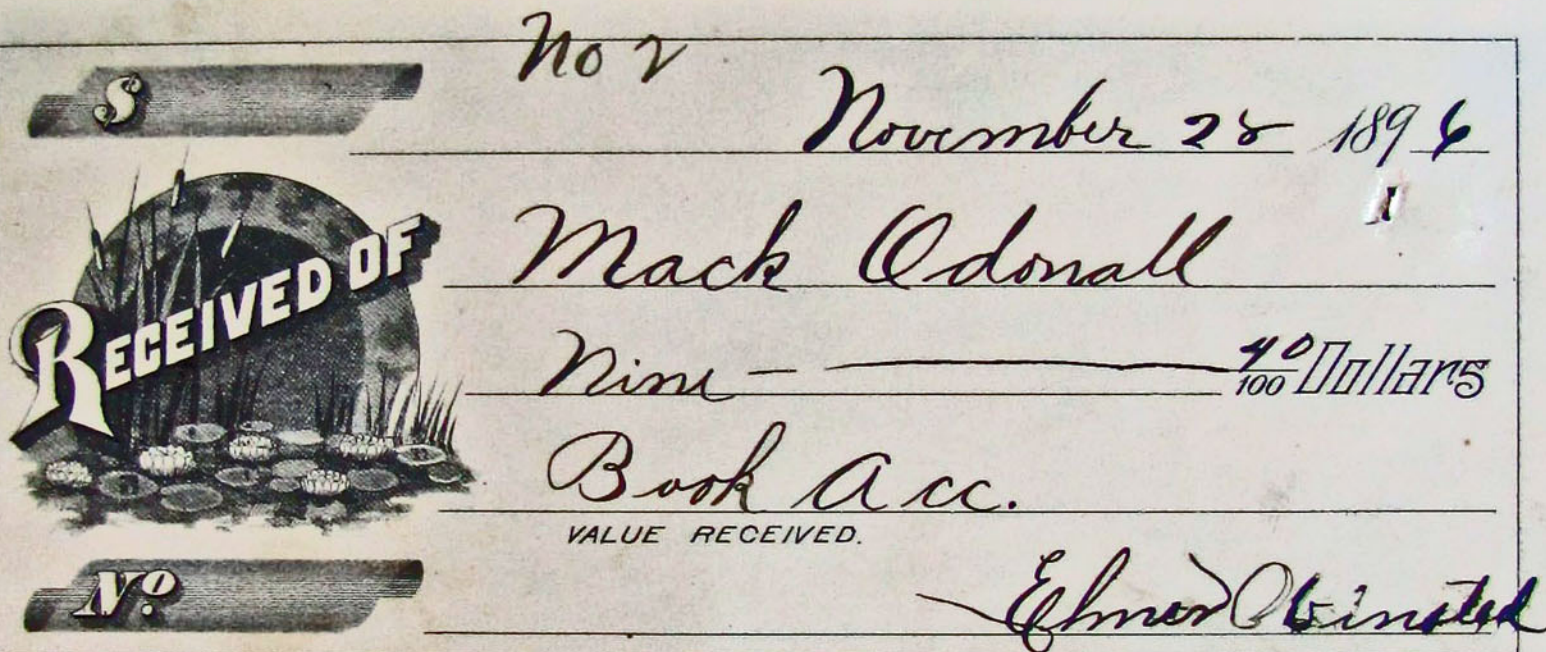 No 2
$
November 28 1896
RECEIVED OF Mack Odonall
Nine — 40/100 Dollars
Book Acc.
VALUE RECEIVED.
No.
Elmer